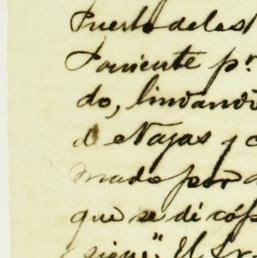 Puerto de las
Poniente pr.
do, lindando
de Najas y
mado por
que se dé cóp
sigue". El Sr.